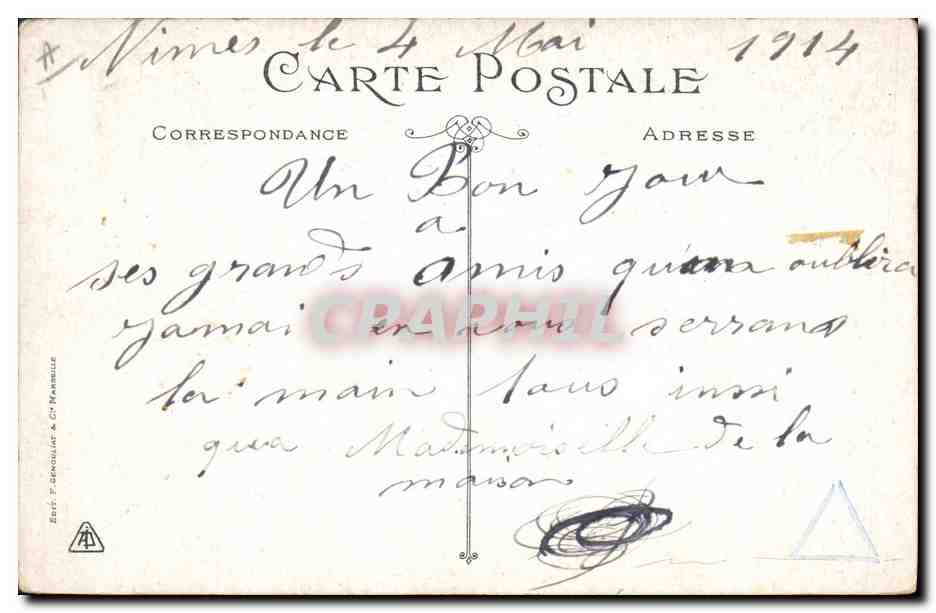 Nimes le 4 Mai 1914
CARTE POSTALE
CORRESPONDANCE
ADRESSE
Un Bon jour
a
ses grands amis qu'on oublira
jamai en vous serrant
la main tous insi
qua Mademoiselle de la
maison
EDIT. F. GENOULIAT & Cie MARSEILLE
CPAPHIL